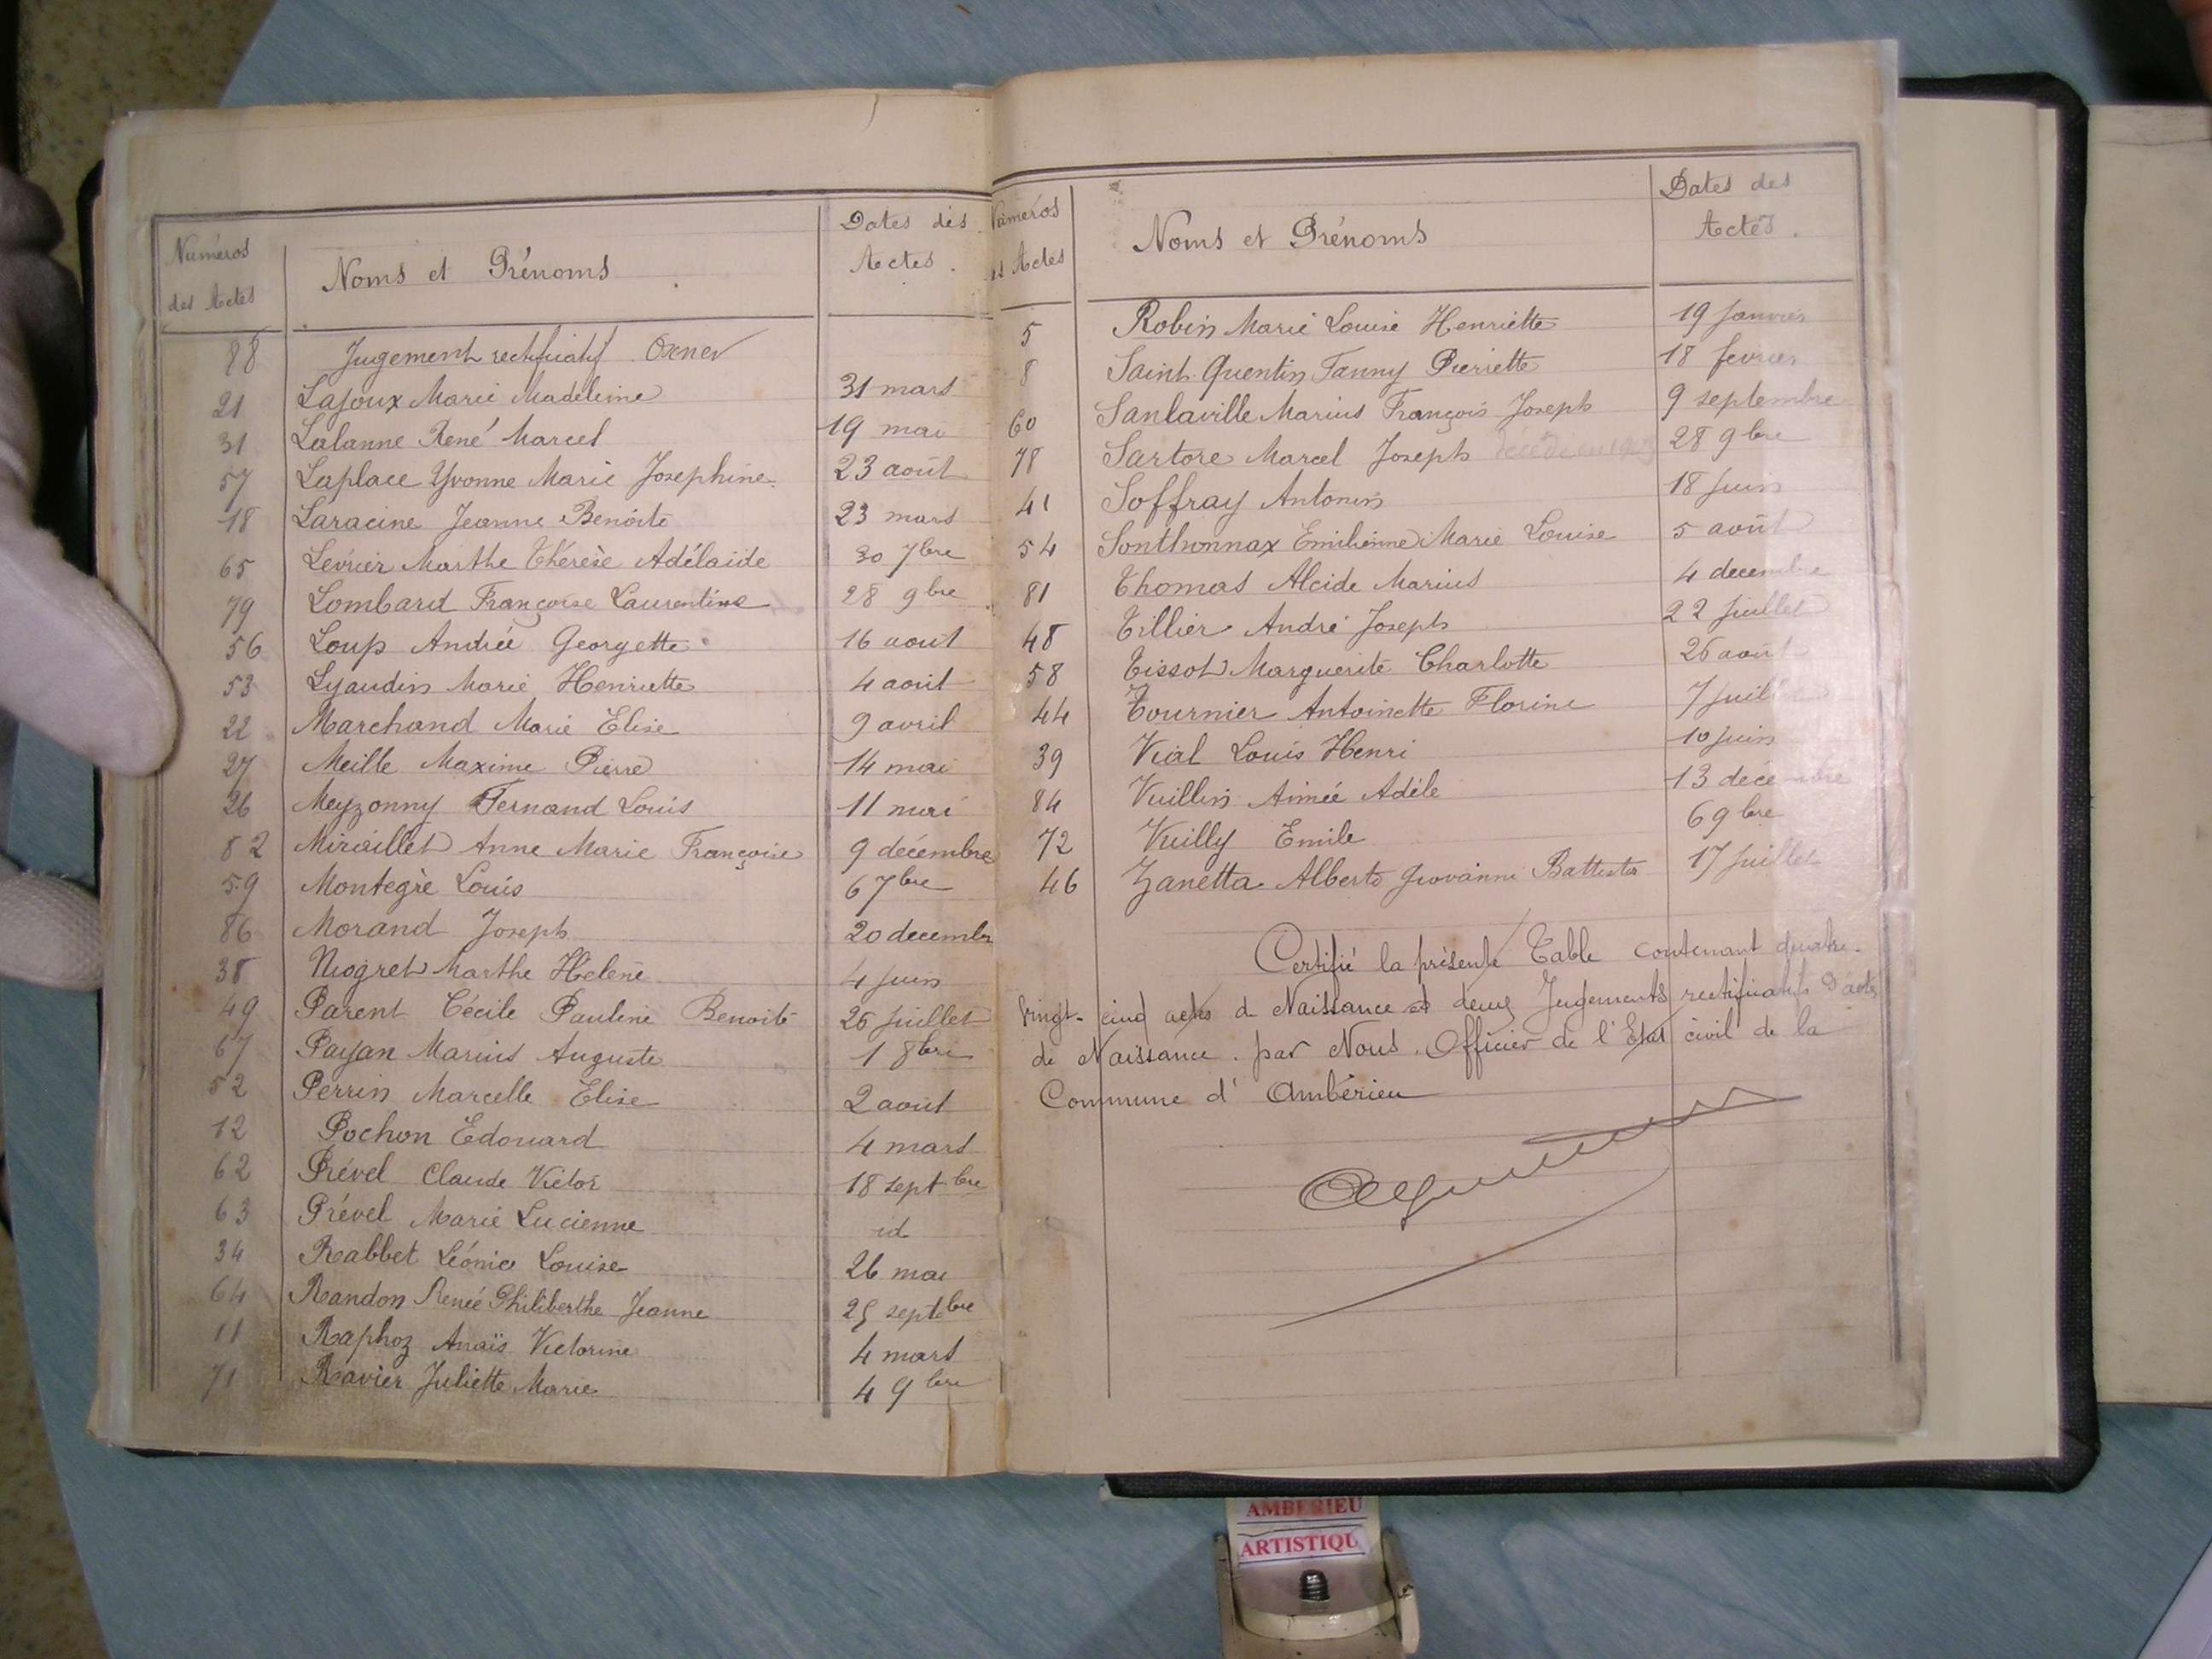 Numéros des Actes | Noms et Prénoms | Dates des Actes.
88 Jugement rectificatif Oxner
21 Lajoux Marie Madeleine 31 mars
31 Lalanne René Marcel 19 mai
57 Laplace Yvonne Marie Josephine 23 août
18 Laracine Jeanne Benoite 23 mars
65 Levrier Marthe Thérèse Adélaide 30 7bre
79 Lombard Françoise Laurentine 28 9bre
56 Loup Andrée Georgette 16 aout
53 Lyaudin Marie Henriette 4 aout
22 Marchand Marie Elise 9 avril
27 Meille Maxime Pierre 14 mai
26 Meyzonny Fernand Louis 11 mai
82 Miraillet Anne Marie Françoise 9 décembre
59 Montegre Louis 6 7bre
86 Morand Joseph 20 decembre
38 Niogret Marthe Hélène 4 juin
49 Parent Cécile Pauline Benoite 25 juillet
67 Payan Marius Auguste 1 8bre
52 Perrin Marcelle Elise 2 aout
12 Pochon Edouard 4 mars
62 Prével Claude Victor 18 septbre
63 Prével Marie Lucienne id
34 Rabbet Léonie Louise 26 mai
64 Randon Renée Philiberthe Jeanne 25 septbre
11 Raphoz Anaïs Victorine 4 mars
71 Ravier Juliette Marie 4 9bre
Numéros des Actes | Noms et Prénoms | Dates des Actes.
5 Robin Marie Louise Henriette 19 janvier
8 Saint-Quentin Fanny Pierrette 18 fevrier
60 Sanlaville Marius François Joseph 9 septembre
78 Sartore Marcel Joseph 28 9bre
41 Soffray Antonin 18 juin
54 Sonthonnax Emilienne Marie Louise 5 août
81 Thomas Alcide Marius 4 decembre
48 Tillier André Joseph 22 juillet
58 Tissot Marguerite Charlotte 26 août
44 Tournier Antoinette Florine 7 juillet
39 Vial Louis Henri 10 juin
84 Vuillin Aimée Adèle 13 decembre
72 Vuilly Emile 6 9bre
46 Zanetta Alberto Giovanni Battista 17 juillet
Certifié la présente Table contenant quatre-
vingt-cinq actes de Naissance et deux Jugements rectificatifs d'actes
de Naissance. par Nous. Officier de l'Etat civil de la
Commune d'Ambérieu
AMBERIEU
ARTISTIQU